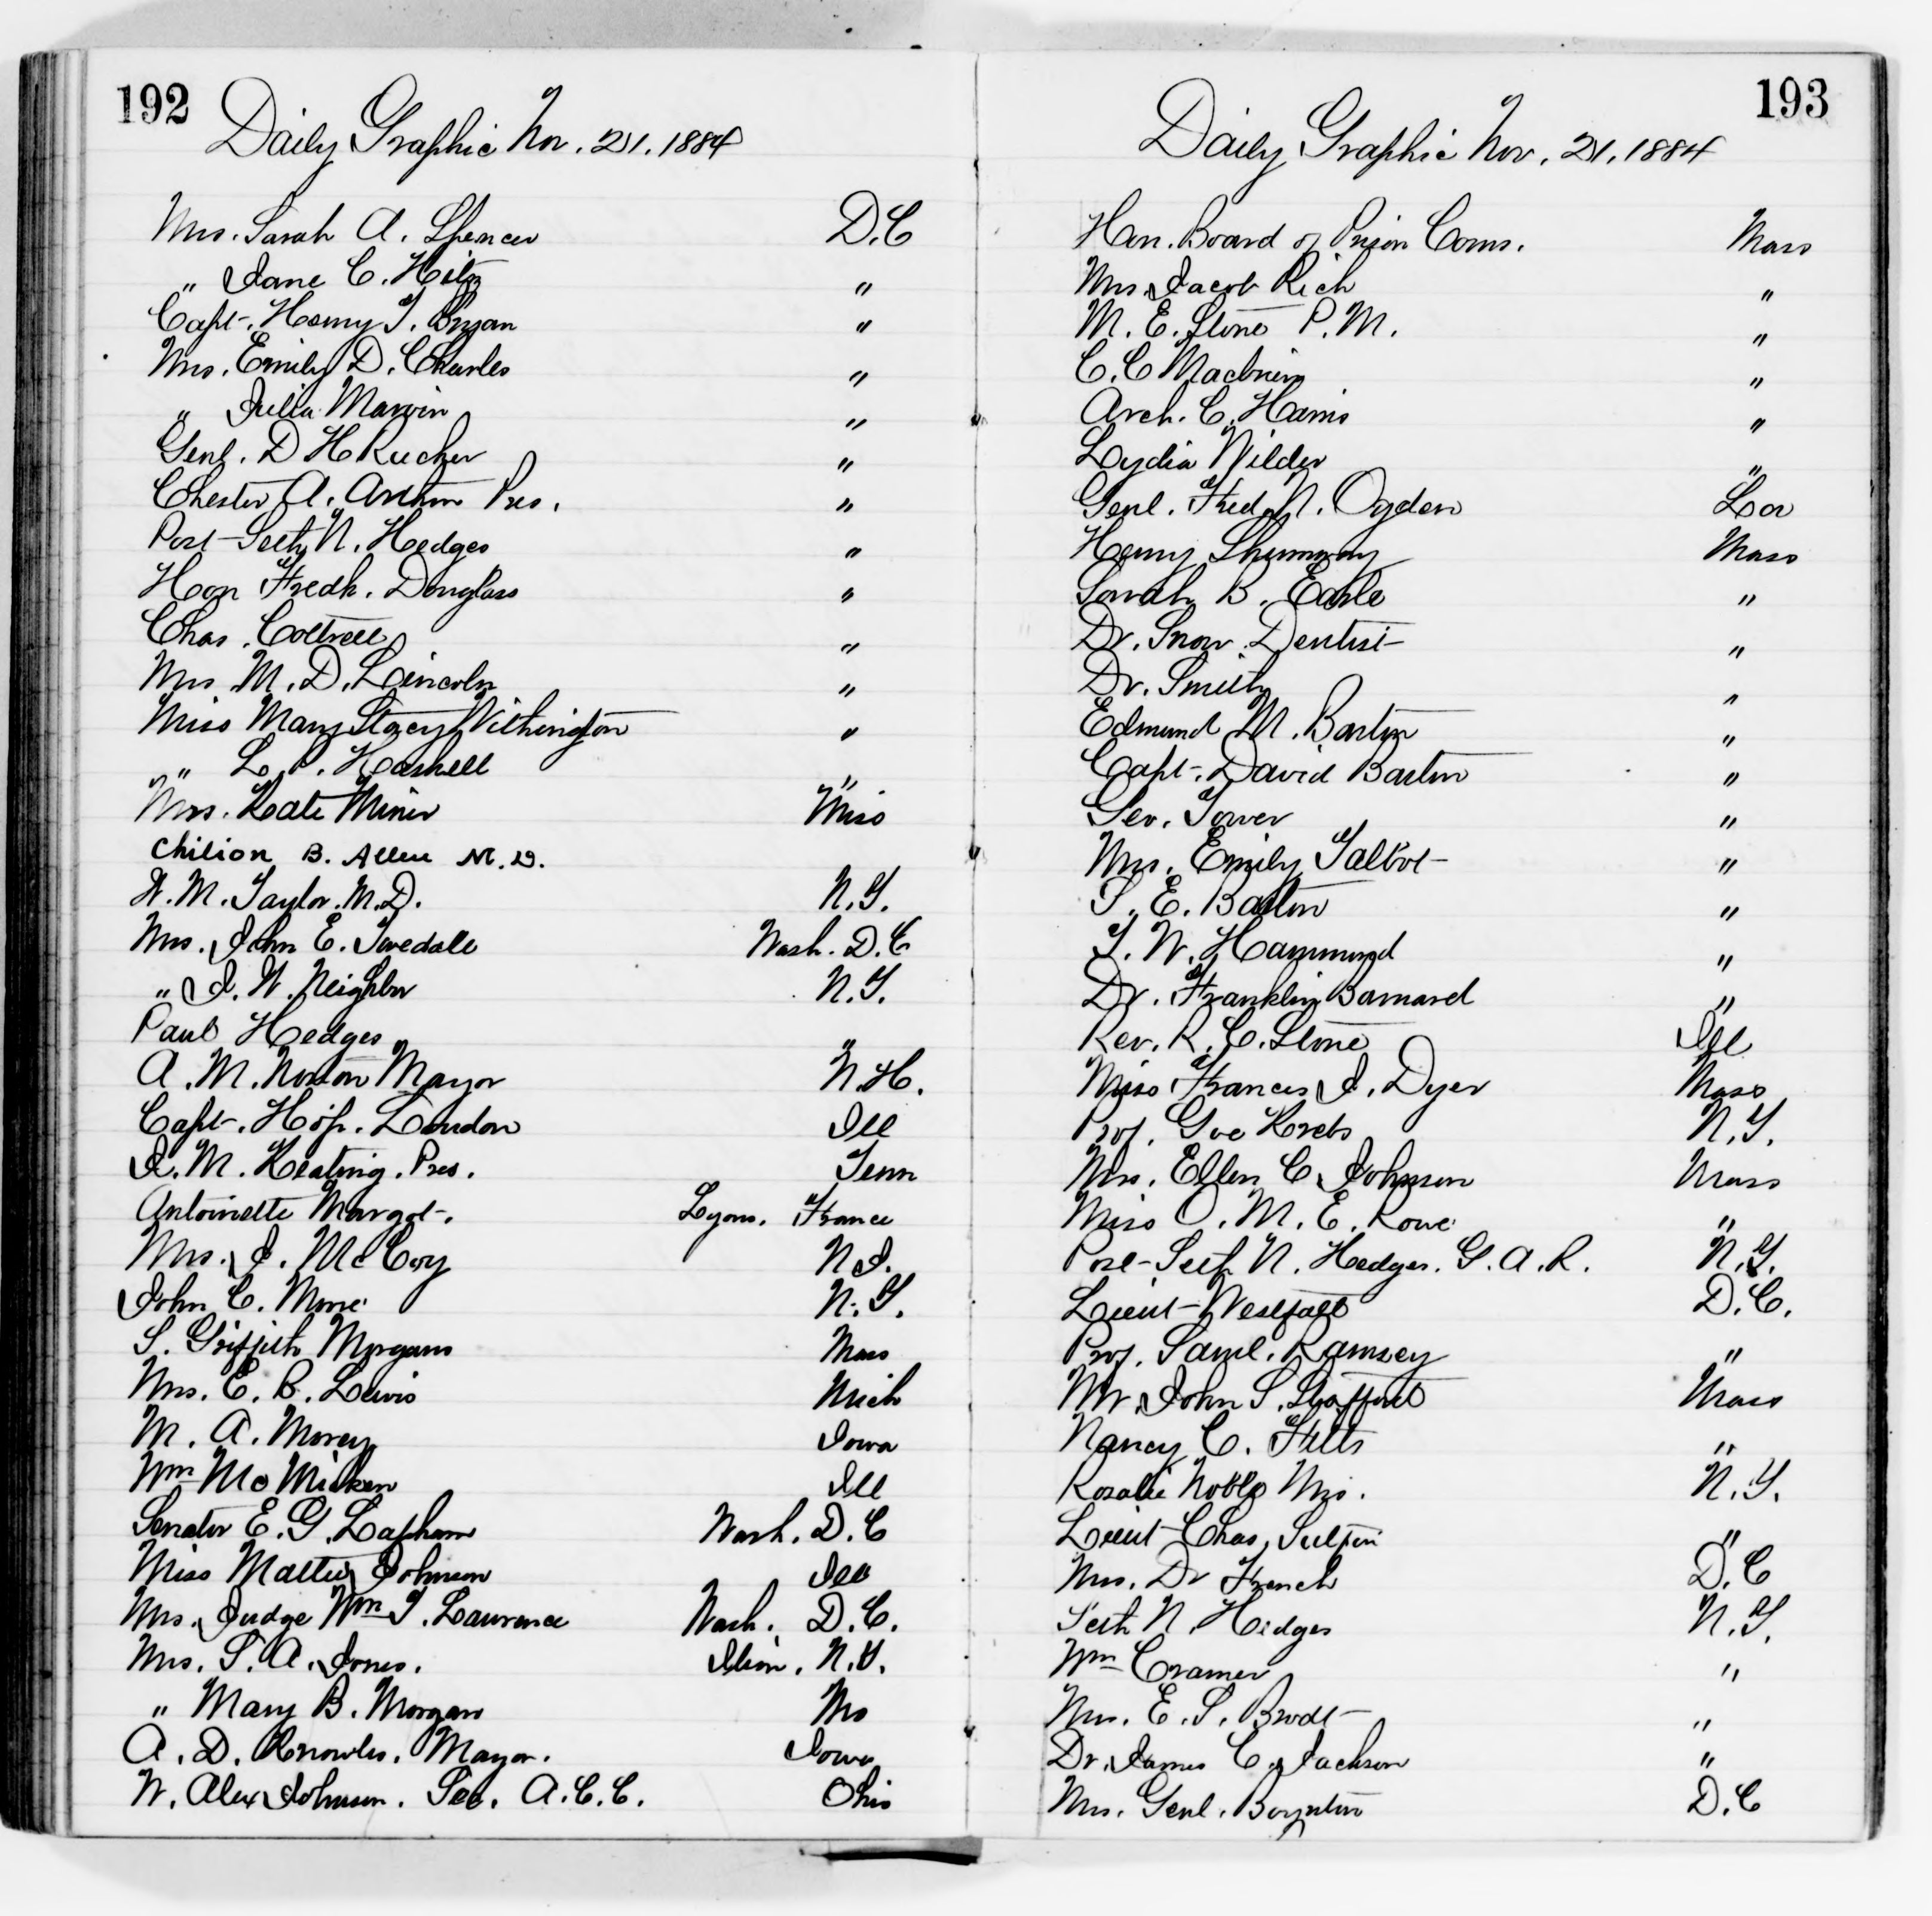 192
Daily Graphic Nov. 21. 1884
Mrs. Sarah A. Spencer D.C
" Jane C. Hitz "
Capt. Henry J. Bryan "
Mrs. Emily D. Charles "
" Julia Marvin "
Genl. D H Rucker "
Chester A. Arthur Pres. "
Post Seth N. Hedges "
Hon Fredk. Douglass "
Chas. Cottrell "
Mrs M. D. Lincoln "
Miss Mary Stacy Withington "
" L. P. Haskell "
Mrs. Kate Miner Miss
Chilion B. Allen M.D.
W. M. Taylor. M.D. N.Y.
Mrs. John E. Twedale Wash. D.C
" J. W. Neighbor N.Y.
Paul Hedges "
A. M. Norton Mayor N.H.
Capt. Hosp. London Ill
J. M. Keating. Pres. Tenn
Antoinette Margot. Lyons. France
Mrs. J. McCoy N J.
John C. More N.Y.
S. Griffith Morgan Mass
Mrs. E. B. Lewis Mich
M. A. Morey Iowa
Wm McMicken Ill
Senator E. G. Lapham Wash. D.C
Miss Mattie Johnson Ill
Mrs. Judge Wm T. Laurence Wash. D.C.
Mrs. S. A. Jones. Ilion. N.Y.
" Mary B. Morgan Mo
A. D. Knowles. Mayor. Iowa
W. Alex Johnson. Sec. A.C.C. Ohio
193
Daily Graphic Nov. 21. 1884
Hon. Board of Prison Coms. Mass
Mrs. Jacob Rich "
M. E. Stone P.M. "
C. C "
Arch. C. Harris "
Lydia Wilder "
Genl. Fred. N. Ogden Loa
Henry Shumway Mass
Sarah B. Earle "
Dr. Snow Dentist "
Dr. Smith "
Edmund M. Barton "
Capt. David Barton "
Geo. Tower "
Mrs. Emily Talbot "
S. E. Barton "
T. W. Hammond "
Dr. Franklin Barnard "
Rev. R. C. Stone Ill
Miss Frances J. Dyer Mass
Prof. Gve Krebs N.Y.
Mrs. Ellen C. Johnson Mass
Miss O. M. E. Rowe "
Post Seth N. Hedges. G.A.R. N.Y.
Lieut Westfall D.C.
Prof. Saml. Ramsey "
Mr. John S. Stafford Mass
Nancy C. Felts "
Rosalie Noble Mrs. N.Y.
Lieut Chas. "
Mrs. Dr French D.C
Seth N. Hedges N.Y.
Wm Cramer "
Mrs. E. S. Brodt "
Dr. James C. Jackson "
Mrs. Genl. Boynton D.C